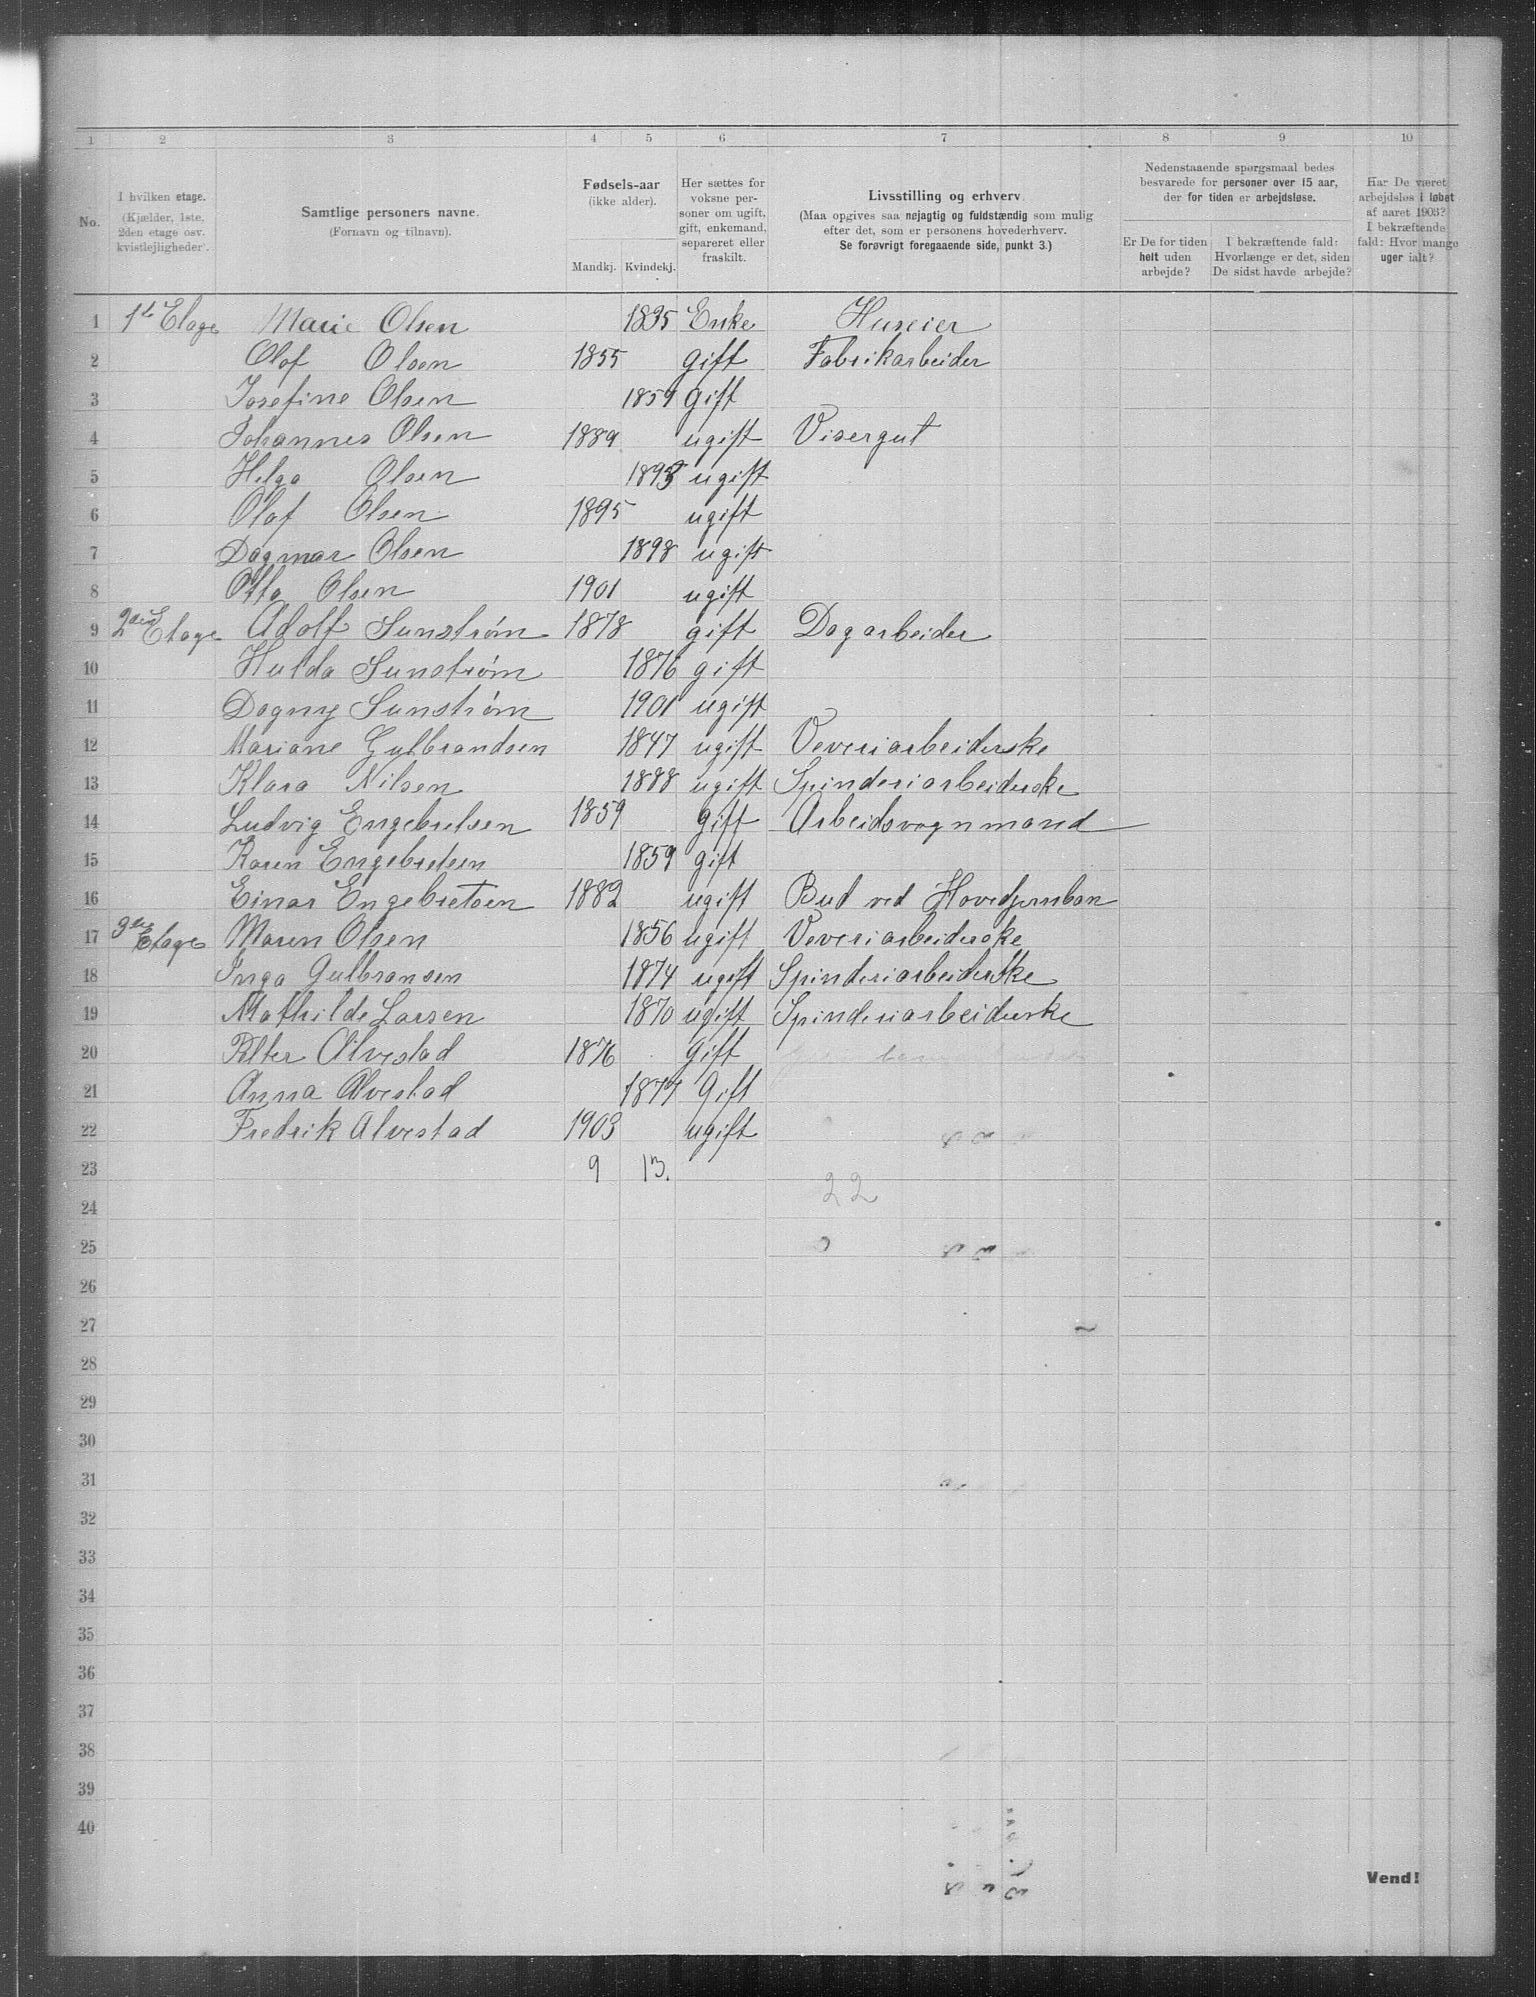 1 2 3 4 5 6 7 8 9 10
No.
I hvilken etage.
(Kjælder, 1ste,
2den etage osv.
kvistlejligheder).
Samtlige personers navne.
(Fornavn og tilnavn).
Fødsels-aar
(ikke alder).
Mandkj. Kvindekj.
Her sættes for
voksne per-
soner om ugift,
gift, enkemand,
separeret eller
fraskilt.
Livsstilling og erhverv.
(Maa opgives saa nøjagtig og fuldstændig som mulig
efter det, som er personens hovederhverv.
Se forøvrigt foregaaende side, punkt 3.)
Nedenstaaende spørgsmaal bedes
besvarede for personer over 15 aar,
der for tiden er arbejdsløse.
Er De for tiden
helt uden
arbejde?
I bekræftende fald:
Hvorlænge er det, siden
De sidst havde arbejde?
Har De været
arbejdsløs i løbet
af aaret 1903?
I bekræftende
fald: Hvor mange
uger ialt?
1 1ste Etage Marie Olsen 1835 Enke Huseier
2 Olaf Olsen 1855 gift Fabrikarbeider
3 Josefine Olsen 1859 gift
4 Johannes Olsen 1889 ugift Visergut
5 Helga Olsen 1893 ugift
6 Olaf Olsen 1895 ugift
7 Dagmar Olsen 1898 ugift
8 Otto Olsen 1901 ugift
9 2den Etage Adolf Sunstrøm 1878 gift Dagarbeider
10 Hulda Sunstrøm 1876 gift
11 Dagny Sunstrøm 1901 ugift
12 Mariane Gulbrandsen 1847 ugift Veveriarbeiderske
13 Klara Nilsen 1888 ugift Spinderiarbeiderske
14 Ludvig Engebretsen 1859 gift Arbeidsvognmand
15 Karen Engebretsen 1859 gift
16 Einar Engebretsen 1882 ugift Bud ved Hovedjernban
17 3die Etage Maren Olsen 1856 ugift Veveriarbeiderske
18 Inga Gulbransen 1874 ugift Spinderiarbeiderske
19 Mathilde Larsen 1870 ugift Spinderiarbeiderske
20 Peter Alvestad 1876 gift
21 Anna Alvestad 1877 Gift
22 Fredrik Alvestad 1903 ugift
23 9 13.
22
24
25
26
27
28
29
30
31
32
33
34
35
36
37
38
39
40
Vend!